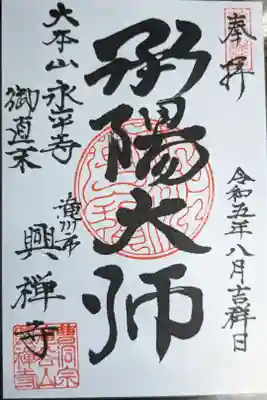 奉拝
令和五年八月吉祥日
承陽大師
大本山永平寺
御直末
滝川市
興禅寺